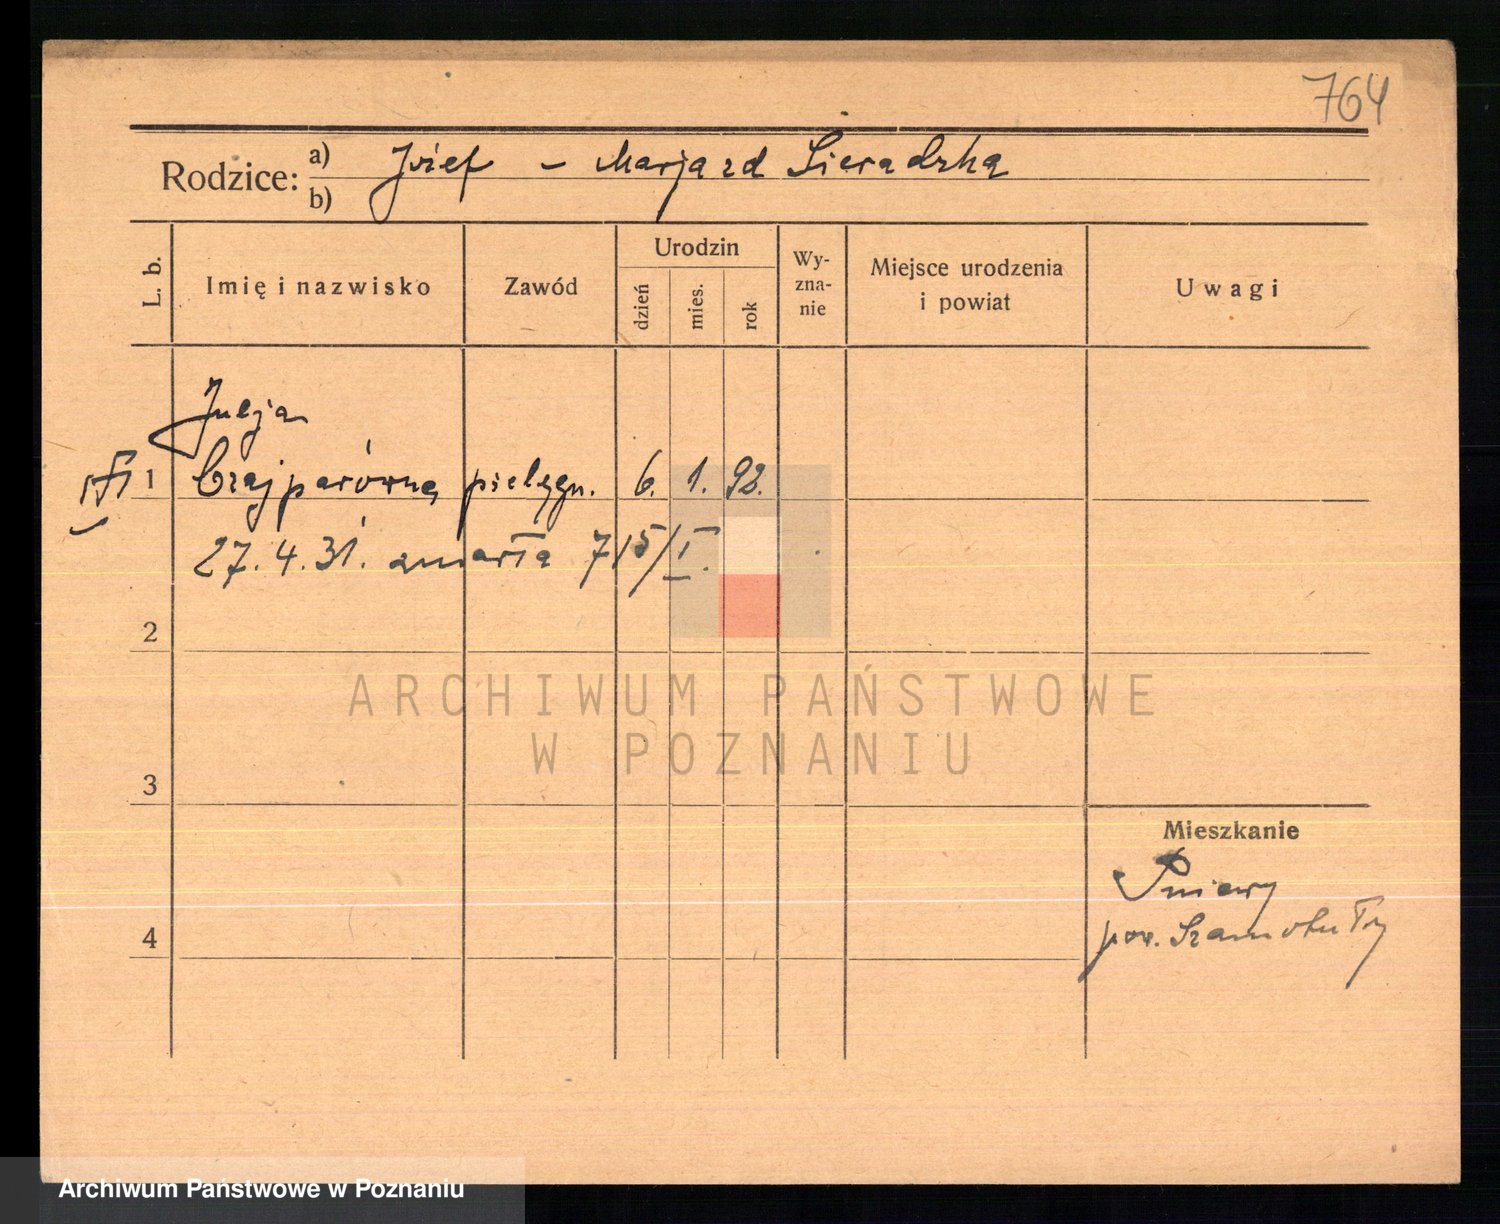 764
Rodzice: a) Józef - Marja zd Sieradzka
b)
L. b.
Imię i nazwisko
Zawód
Urodzin
dzień
mies.
rok
Wy-
zna-
nie
Miejsce urodzenia
i powiat
Uwagi
Julja
1 Czajparówna pielęgn. 6. 1. 92.
27.4.31. zmarła 715/I.
2
ARCHIWUM PAŃSTWOWE
W POZNANIU
3
Mieszkanie
Pniewy
pow. Szamotuły
4
Archiwum Państwowe w Poznaniu